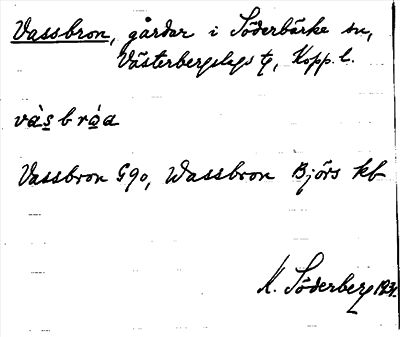 Vassbron, gårdar i Söderbärke sn,
Västerbergslags tg, Kopp. l.
và̀s bròa
Vassbron G90, Wassbron Björs kb
K. Söderberg 193